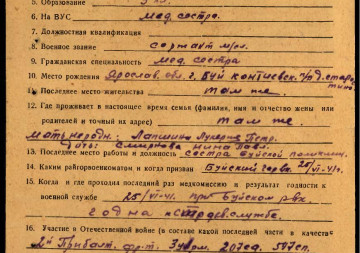 5. Образование
6. На ВУС мед. сестра.
7. Должностная квалификация
8. Военное звание сержант м/сл.
9. Гражданская специальность мед. сестра
10. Место рождения Ярослав. обл. г. Буй
11. Последнее место-жительства там же.
12. Где проживает в настоящее время семья (фамилия, имя и отчество жены или
родителей и точный адрес) там же.
Мать Петр.
Дочь: Смирнова Нина Павл.
13. Последнее место работы и должность сестра Буйской
14. Каким райгорвоенкоматом и когда призван Буйский 25/VI-41г.
15. Когда и где проходил последний раз медкомиссию и результат годности к
военной службе 25/VI-41. при Буйском рвк
годна к службе.
16. Участие в Отечественной войне (в составе какой последней части в качестве
2й Прибалт. фр-т. 207сд. 597сп.